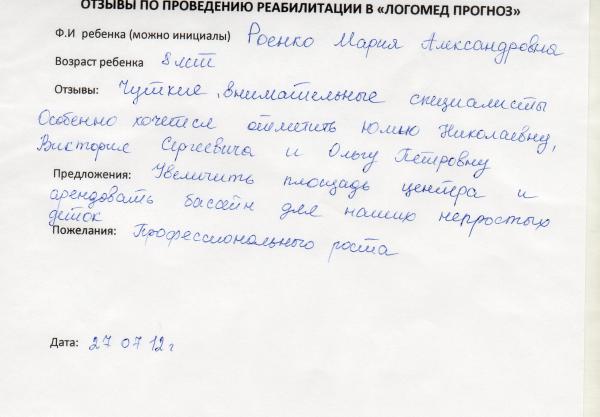 ОТЗЫВЫ ПО ПРОВЕДЕНИЮ РЕАБИЛИТАЦИИ В «ЛОГОМЕД ПРОГНОЗ»
Ф.И ребенка (можно инициалы) Роенко Мария Александровна
Возраст ребенка 8 лет
Отзывы: Чуткие, внимательные специалисты
Особенно хочется отметить Юлию Николаевну,
Виктория Сергеевича и Ольгу Петровну
Предложения: Увеличить площадь центра и
арендовать бассейн для наших непростых
деток
Пожелания: Профессионального роста
Дата: 27 07 12 г